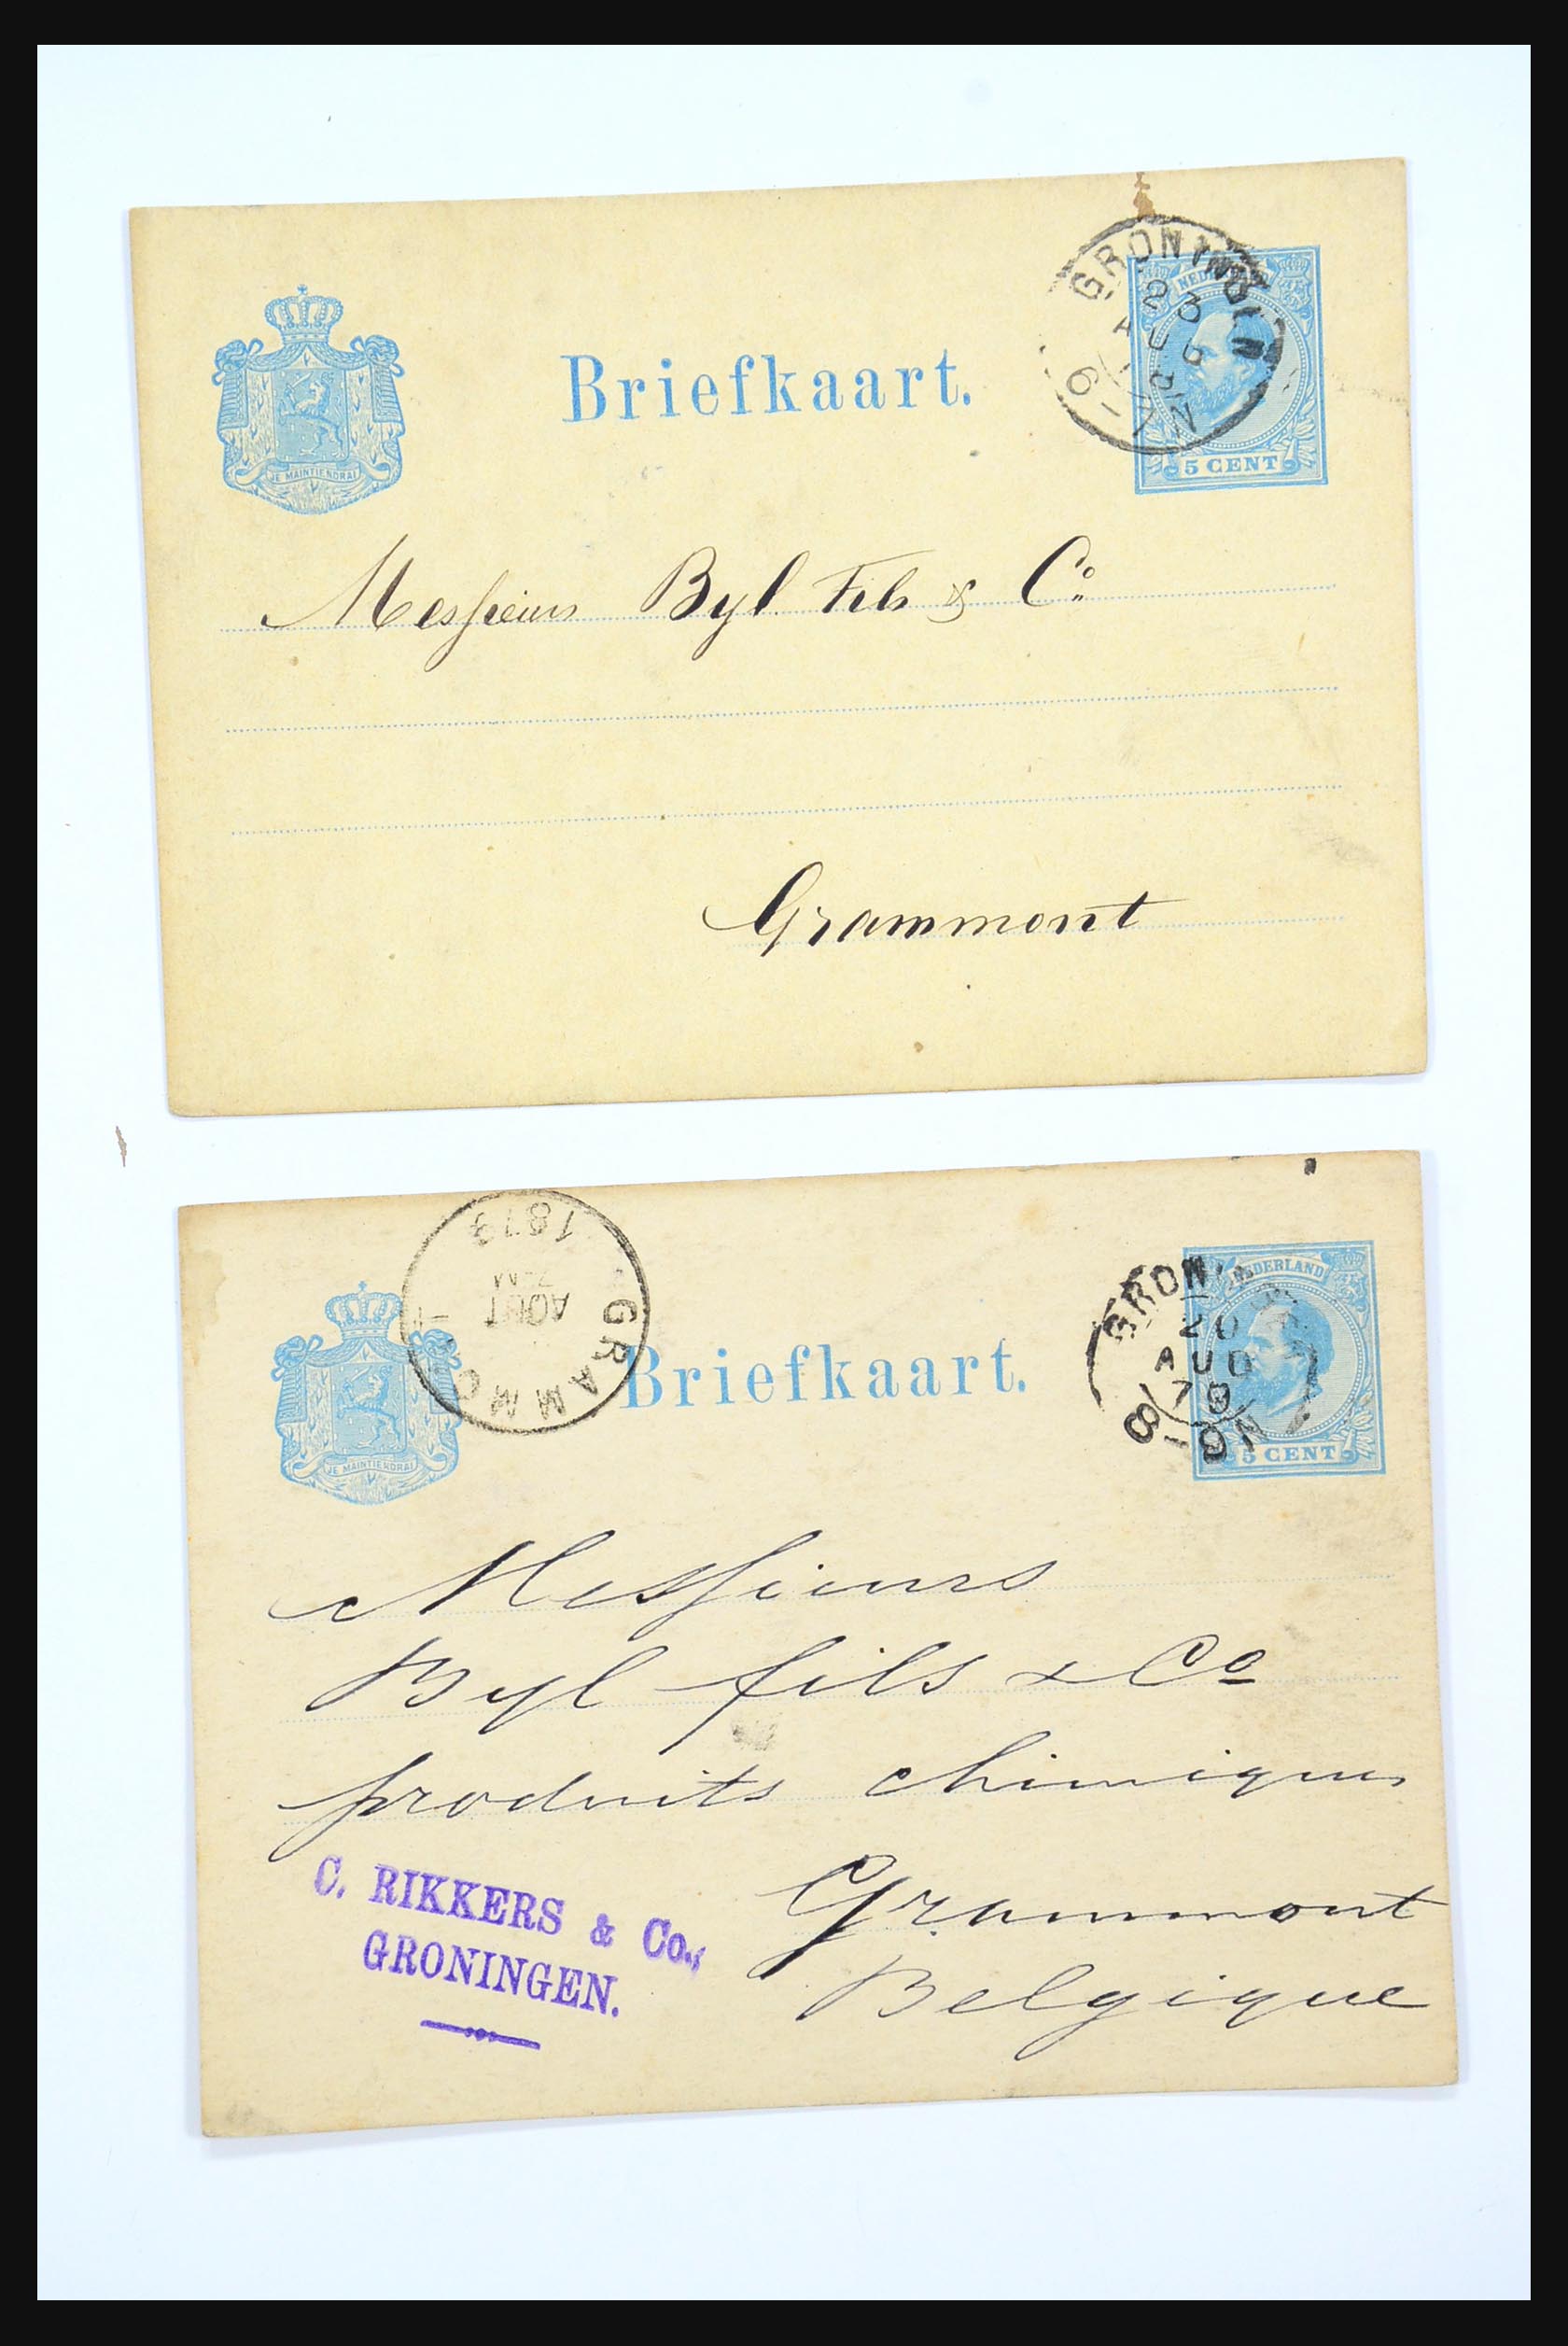 GRONINGEN
23
AUG
6-7N
NEDERLAND
5 CENT
JE MAINTIENDRAI
Briefkaart.
Messieurs Byl Fils & Co
Grammont
1879
AOUT
GRAMMO
GRONIN
20
AUG
79
8-9N
NEDERLAND
5 CENT
JE MAINTIENDRAI
Briefkaart.
Messieurs
Byl fils & Co
produits chimiques
Grammont
Belgique
C. RIKKERS & Co.,
GRONINGEN.